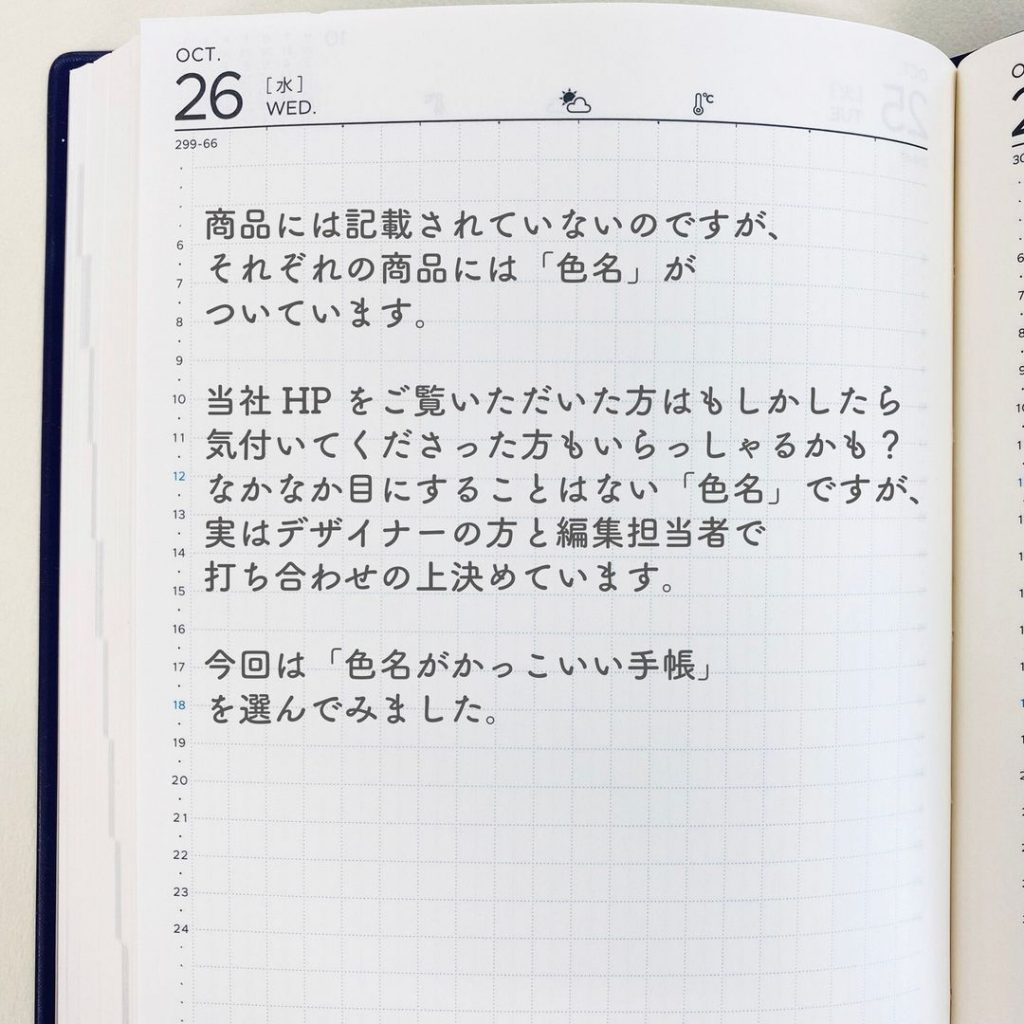 OCT.
26 [水] WED.
℃
299-66
商品には記載されていないのですが、
それぞれの商品には「色名」が
ついています。
当社 HP をご覧いただいた方はもしかしたら
気付いてくださった方もいらっしゃるかも？
なかなか目にすることはない「色名」ですが、
実はデザイナーの方と編集担当者で
打ち合わせの上決めています。
今回は「色名がかっこいい手帳」
を選んでみました。
6
7
8
9
10
11
12
13
14
15
16
17
18
19
20
21
22
23
24